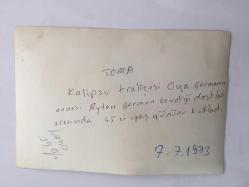 TOMA
Kalipso kraliçesi Oya Germen
annesi Ayten Germen sevdiği dostları
arasında 45 ci yaş gününü kutladı.
7.7.1973